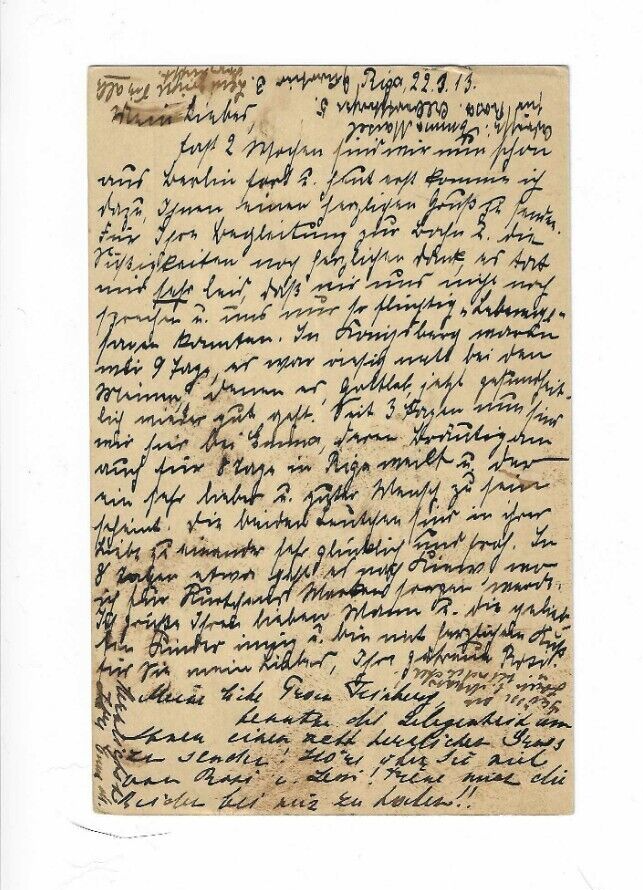 Riga, 22.9.13.
Mein Liebes,
fast 2 Wochen sind wir nun schon
aus Berlin fort u. heut erst komme ich
dazu, Ihnen einen herzlichen Gruß zu senden.
Für Ihre Begleitung zur Bahn u. die
Süßigkeiten noch herzlichen Dank, es tat
mir sehr leid, daß wir uns nicht noch
sprechen u. uns nur so flüchtig „Lebewohl"
sagen konnten. In Königsberg waren
wir 9 Tage, es war riesig nett bei den
Meinen, denen es gottlob jetzt gesundheit-
lich wieder gut geht. Seit 3 Tagen nun sind
wir hier bei Emma, deren Bräutigam
auch für 8 Tage in Riga weilt u. der
ein sehr lieber u. guter Mensch zu sein
scheint. Die beiden Leutchen sind in ihrer
Liebe zu einander sehr glücklich und froh. In
8 Tagen etwa geht es nach Kiew, wo
ich für Kurtchens sorgen werde.
Ich grüße Ihren lieben Mann u. die gelieb-
ten Kinder innig u. bin mit herzlichem Kuß
für Sie mein Liebes, Ihre getreue Rosi.
Meine liebe Frau Feinberg,
benutze die Gelegenheit um
Ihnen einen recht herzlichen Gruss
zu senden! Höre oft Sie viel
von Rosi u. Leni! Freue mich die
Beiden bei mir zu haben!!